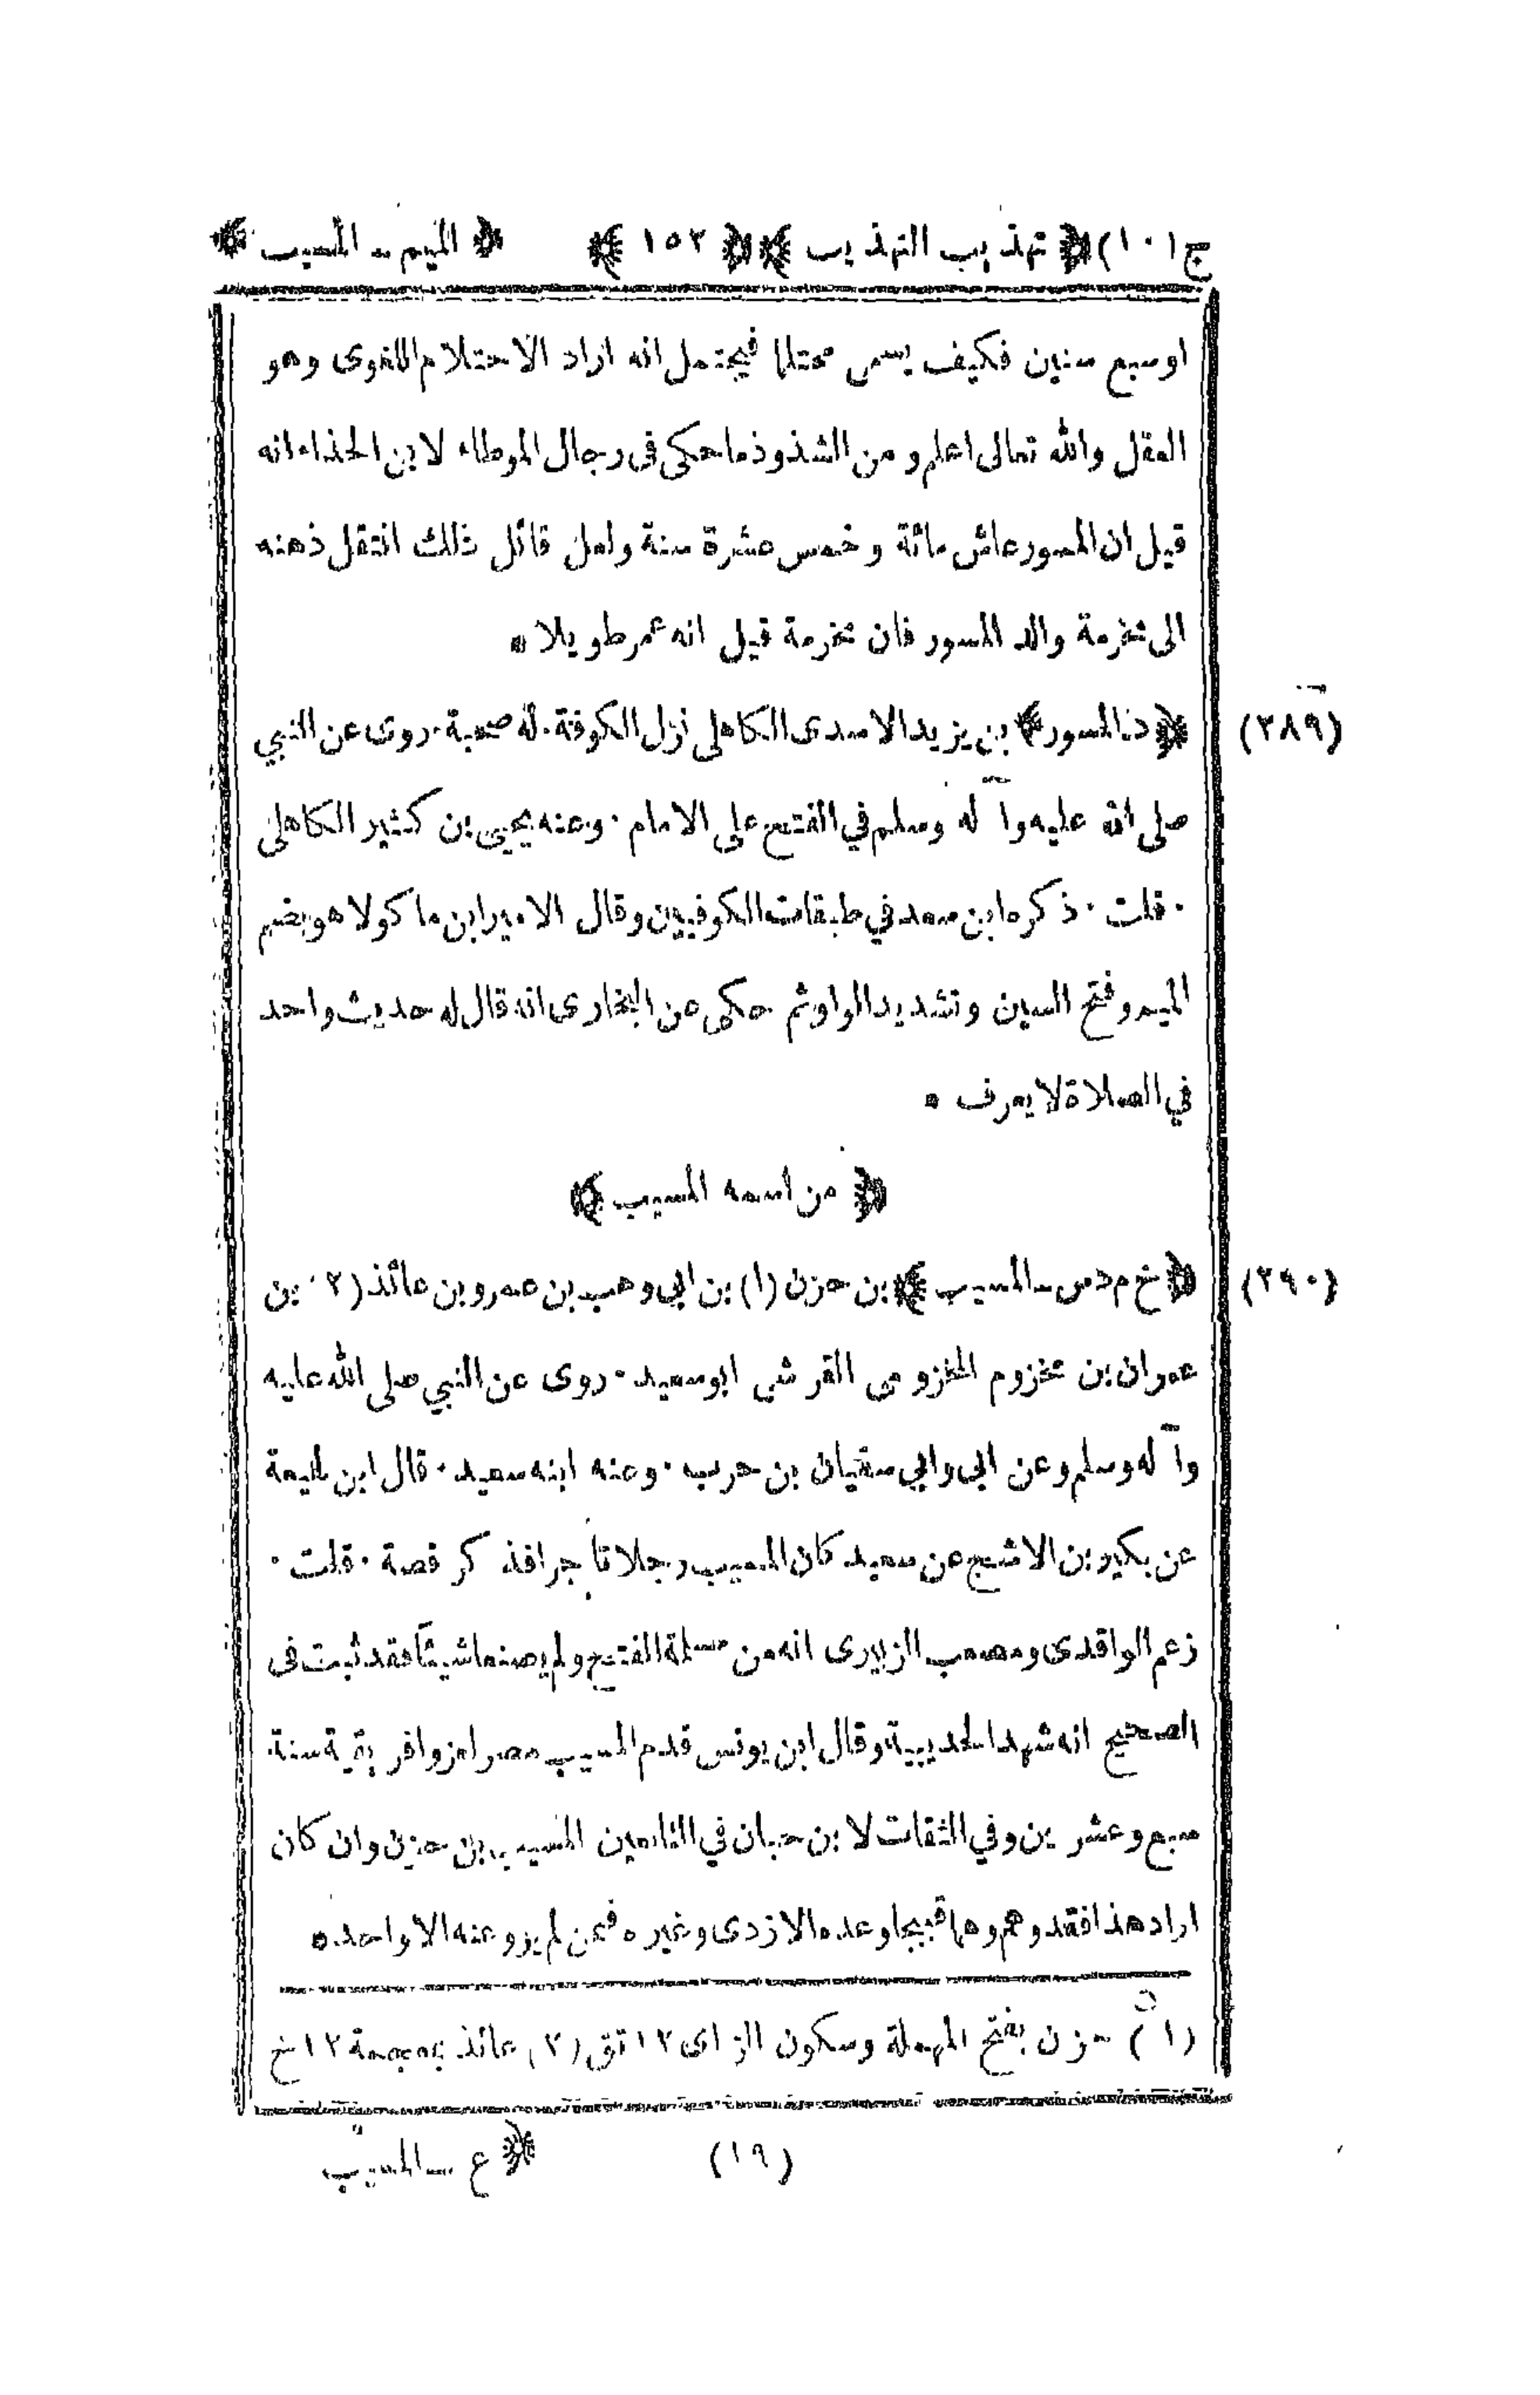 ج (١٠) ﴿ تهذيب التهذيب ﴾ ﴿ ١٥٢ ﴾ ﴿ الميم ـ المسيب ﴾
او سبع سنين فكيف يسمى محتلما فيحتمل انه اراد الاحتلام اللغوى وهو
العقل والله تعالى اعلم و من الشذوذ ما حكى فى رجال الموطاء لابن الحذاء انه
قيل ان المسور عاش مائة و خمس عشرة سنة ولعل قائل ذلك انتقل ذهنه
الى مخرمة والد المسور فان مخرمة قيل انه عمر طويلا ٠
(٢٨٩) ﴿ د ـ المسور ﴾ بن يزيد الاسدى الكاهلى نزل الكوفة ٠ له صحبة ٠ روى عن النبي
صلى الله عليه وآله وسلم في الفتح على الامام ٠ وعنه يحيى بن كثير الكاهلى
٠ قلت ٠ ذكره ابن سعد في طبقات الكوفيين وقال الامير ابن ماكولا هو بضم
الميم وفتح السين وتشديد الواو ثم حكى عن البخارى انه قال له حديث واحد
في الصلاة لا يعرف ٠
﴿ من اسمه المسيب ﴾
(٢٩٠) ﴿ خ م د س ـ المسيب ﴾ بن حزن (١) بن ابي وهب بن عمرو بن عائذ (٢) بن
عمران بن مخزوم المخزومى القرشى ابو سعيد ٠ روى عن النبي صلى الله عليه
وآله وسلم وعن ابى وابي سفيان بن حرب ٠ وعنه ابنه سعيد ٠ قال ابن لهيعة
عن بكير بن الاشج عن سعيد كان المسيب رجلا تاجرا فذكر قصة ٠ قلت ٠
زعم الواقدى ومصعب الزبيرى انه من مسلمة الفتح ولم يصنعا شيئا فقد ثبت فى
الصحيح انه شهد الحديبية وقال ابن يونس قدم المسيب مصر لغزو افريقية سنة
سبع وعشرين وفي الثقات لابن حبان في التابعين المسيب بن حزن وان كان
اراد هذا فقد وهم وهما قبيحا وعده الازدى وغيره فيمن لم يرو عنه الا واحد ٠
(١) حزن بفتح المهملة وسكون الزاى ١٢ تق (٢) عائذ بمعجمة ١٢ خ
(١٩) ﴿ ع ـ المسيب